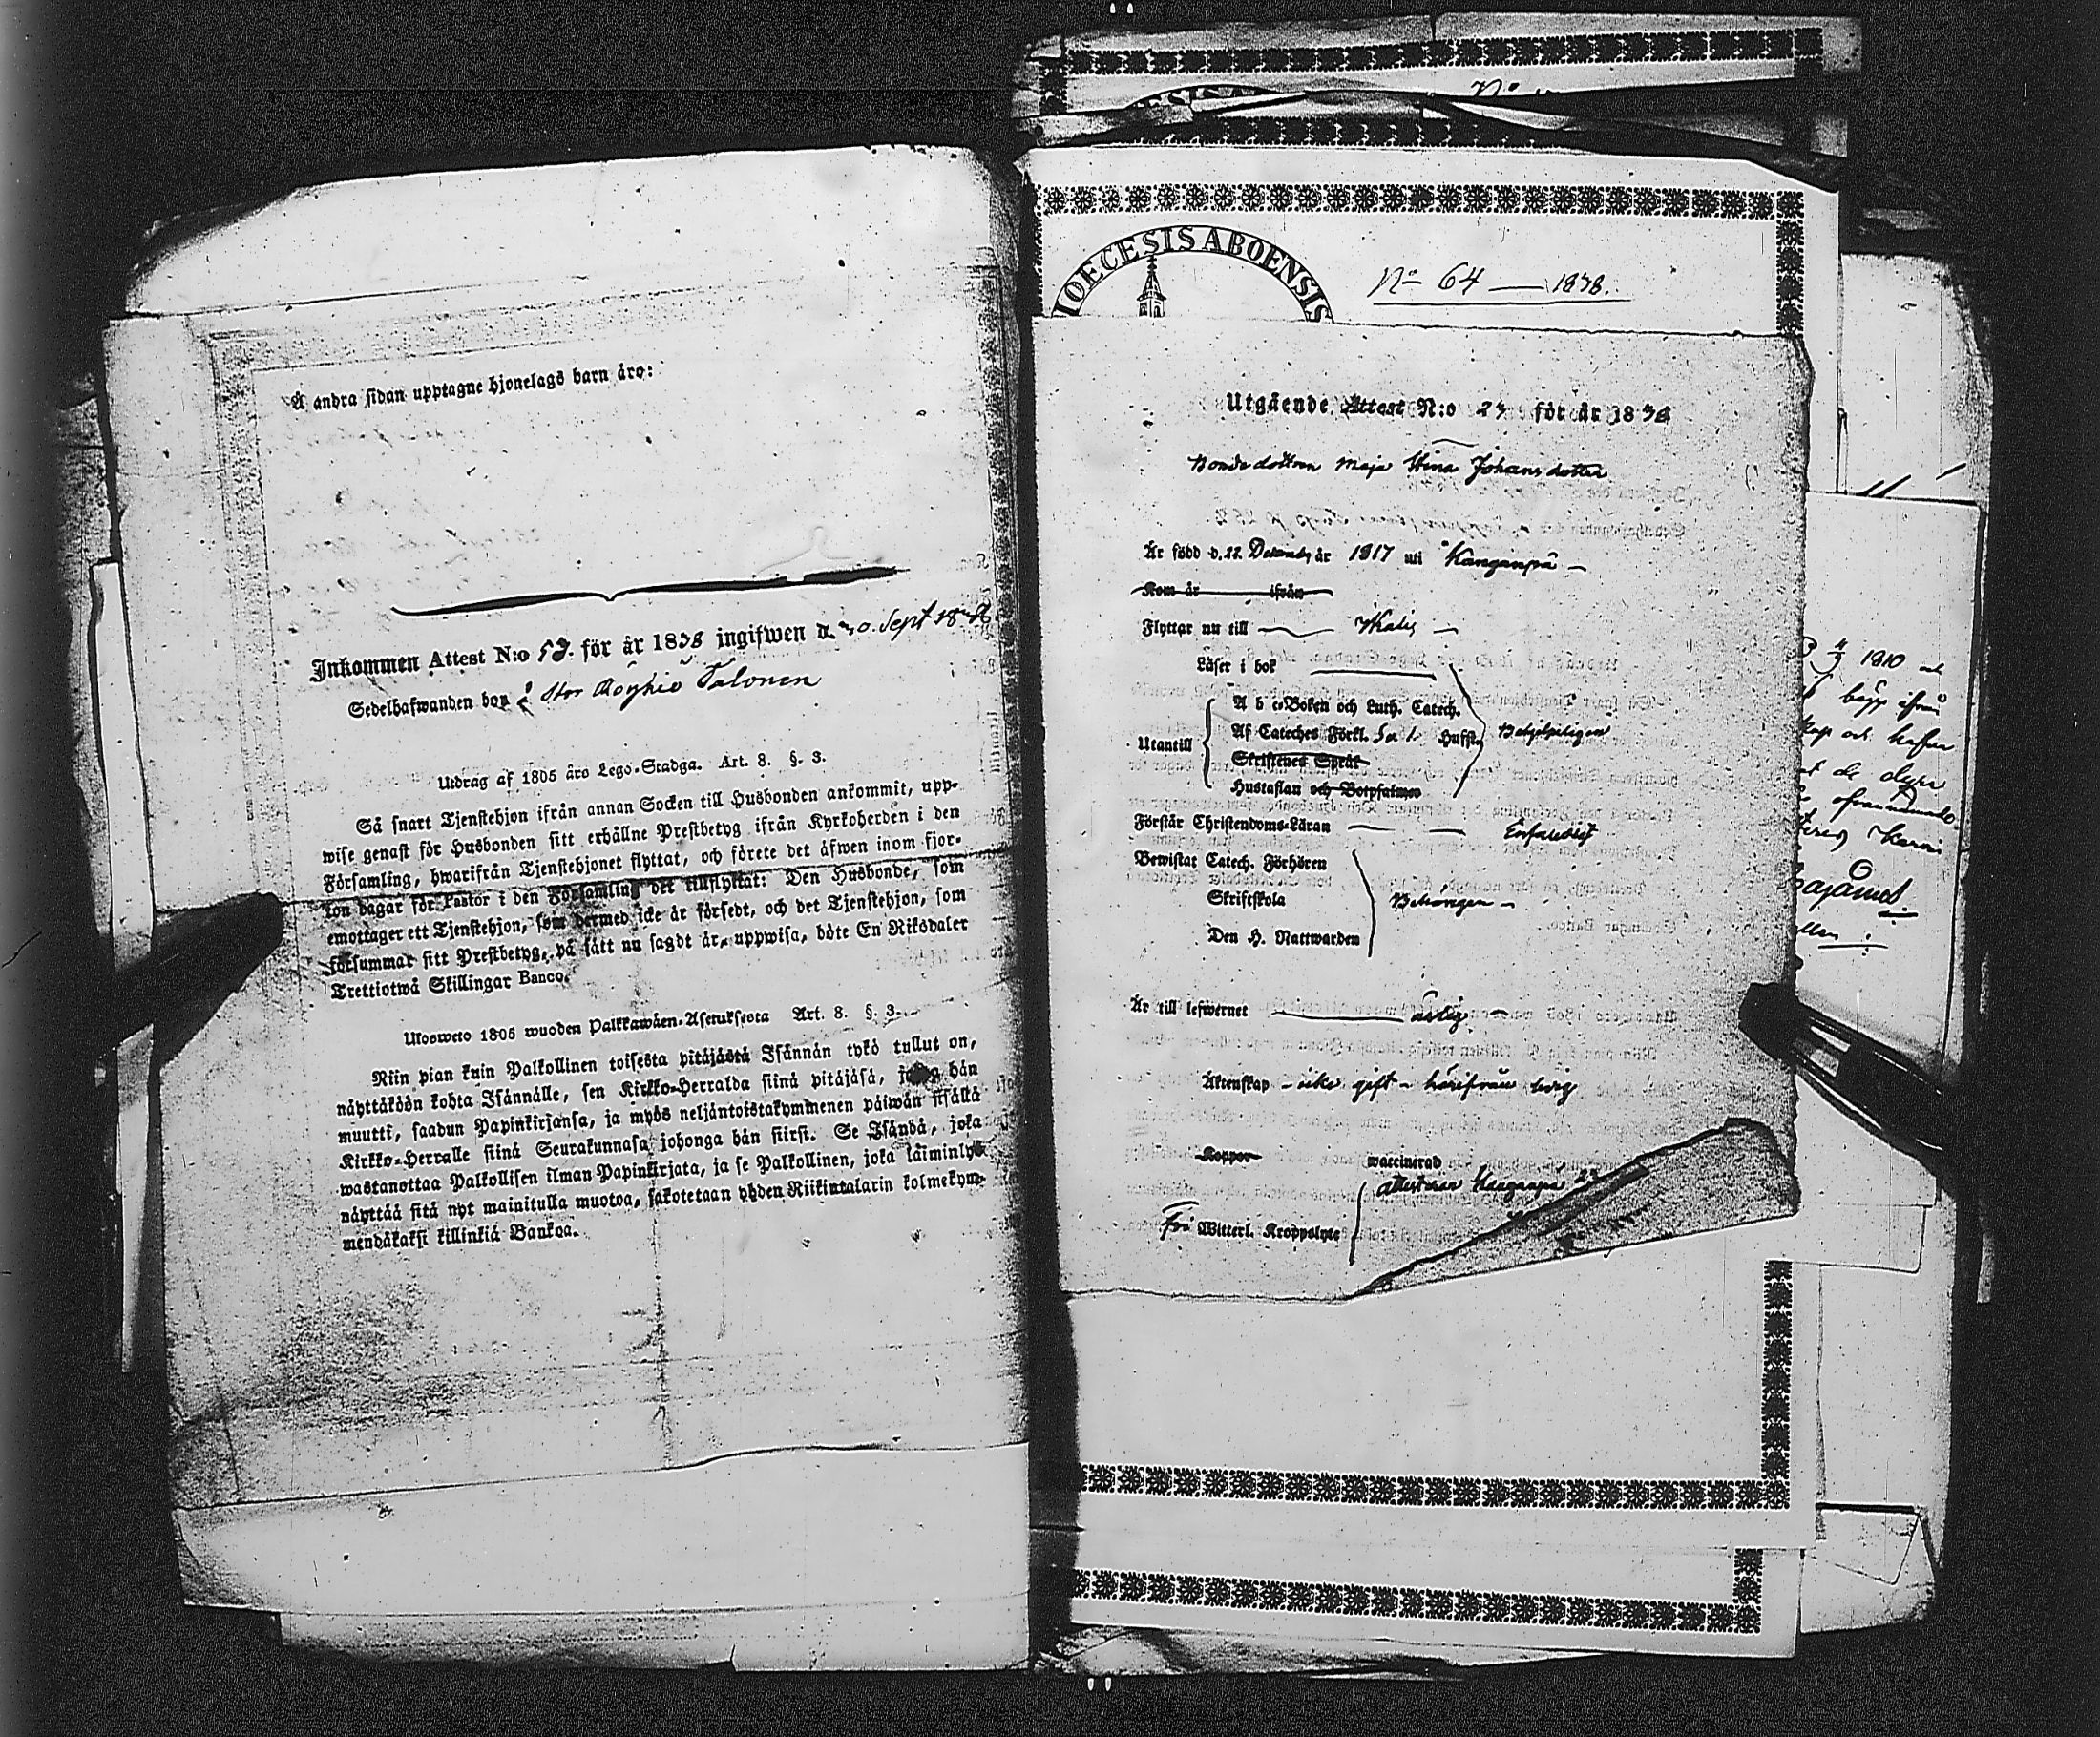 Å andra sidan upptagne hjonelags barn äro:
Inkommen Attest N:o 53. för år 1838 ingifwen d. 30. Sept 1838
Sedelhafwanden bor å Stor Röyhiö Talonen
Utdrag af 1805 års Lego-Stadga. Art. 8. §. 3.
Så snart Tjenstehjon ifrån annan Socken till Husbonden ankommit, upp-
wise genast för Husbonden sitt erhållne Prestbetyg ifrån Kyrkoherden i den
Församling, hwarifrån Tjenstehjonet flyttat, och förete det äfwen inom fjor-
ton dagar för Pastor i den Församling det tillflyttat: Den Husbonde, som
emottager ett Tjenstehjon, som dermed icke är försedt, och det Tjenstehjon, som
försummar sitt Prestbetyg, på sätt nu sagdt är, uppwisa, böte En Riksdaler
Trettiotwå Skillingar Banco.
Ulosweto 1805 wuoden Palkkawäen-Asetuksesta Art. 8. §. 3.
Niin pian kuin Palkollinen toisesta pitäjästä Isännän tykö tullut on,
näyttäköön kohta Isännälle, sen Kirkko-Herralda siinä pitäjäsä, josta hän
muutti, saadun Papinkirjansa, ja myös neljäntoistakymmenen päiwän sisällä
Kirkko-Herralle siinä Seurakunnasa johonga hän siirsi. Se Isändä, joka
wastanottaa Palkollisen ilman Papinkirjata, ja se Palkollinen, joka laiminlyö
näyttää sitä nyt mainitulla muotoa, sakotetaan yhden Riikintalarin kolmekym-
mendäkaksi killinkiä Bankoa.
DIOECESIS ABOENSIS
No 64 — 1838.
Utgående Attest N:o 27 för år 1838
Bondedottren Maja Stina Johansdotter
Är född d. 22 Decemb, år 1817 uti Kanganpä
Kom år ifrån
Flyttar nu till Ikalis
Läser i bok
Utantill
A b c-Boken och Luth. Catech.
Af Cateches Förkl. 5 a 1. Hufst.
Skriftenes Språk
Hustaflan och Botpsalmer
Behjelpeligen
Förstår Christendoms-Läran Enfaldigt
Bewistat Catech. Förhören
Skriftskola
Den H. Nattwarden
Behörigen
Är till lefwernet ärlig
Äktenskap – icke gift – härifrån ledig
Koppor waccinerad
Attesteras Kanganpä 22
Fri Witterl. Kroppslyte
1810